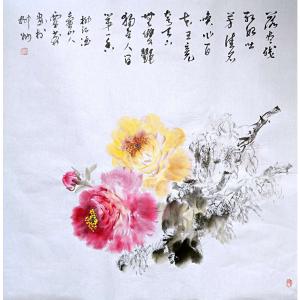 落尽残
红始吐
芳佳名
唤作百
花王竞
夸天下
无双艳
独占人间
第一香